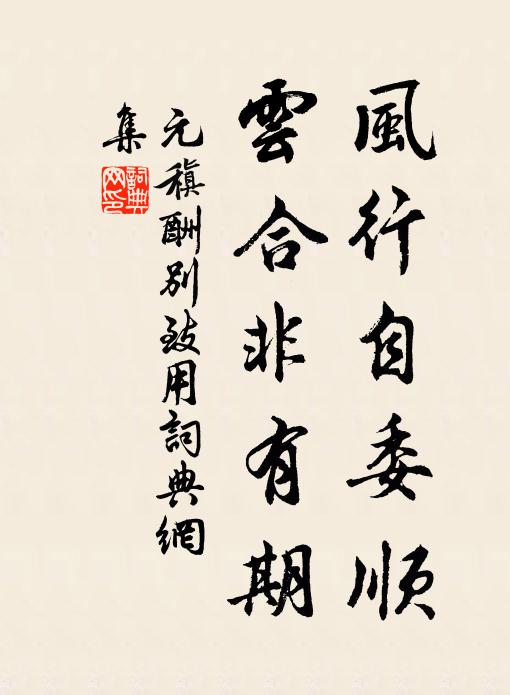 風行自委順
雲合非有期
元稹酬別致用詞典網
集
詞典網印